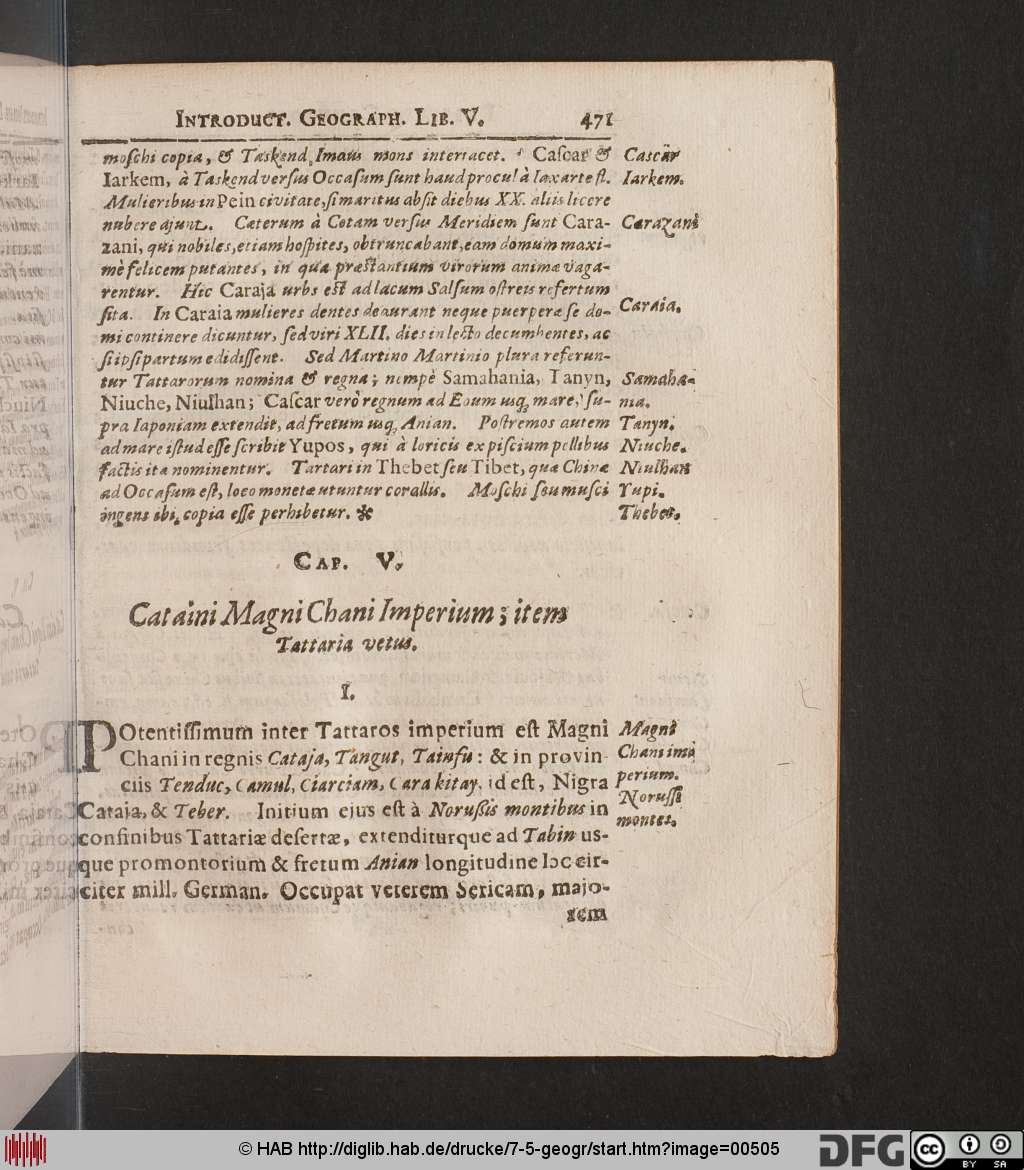 INTRODUCT. GEOGRAPH. LIB. V. 471
moſchi copia, & Tæskend, Imaüs mons interiacet. Caſcar &
Iarkem, à Taskend verſus Occaſum ſunt haud procul à Iaxarte fl.
Mulieribus in Pein civitate, ſi maritus abſit diebus XX. aliis licere
nubere ajunt. Cæterum à Cotam verſus Meridiem ſunt Cara-
zani, qui nobiles, etiam hoſpites, obtruncabant, eam domum maxi-
mè felicem putantes, in qua præſtantium virorum animæ vaga-
rentur. Hic Caraja urbs eſt ad lacum Salſum oſtreis refertum
ſita. In Caraia mulieres dentes deaurant neque puerperæ ſe do-
mi continere dicuntur, ſed viri XLII. dies in lecto decumbentes, ac
ſi ipſi partum edidiſſent. Sed Martino Martinio plura referun-
tur Tattarorum nomina & regna; nempè Samahania, Tanyn,
Niuche, Niulhan; Caſcar verò regnum ad Eoum usq; mare, ſu-
pra Iaponiam extendit, ad fretum usq; Anian. Poſtremos autem
ad mare iſtud eſſe ſcribit Yupos, qui à loricis ex piſcium pellibus
factis ita nominentur. Tartari in Thebet ſeu Tibet, quæ Chinæ
ad Occaſum eſt, loco monetæ utuntur corallis. Moſchi ſeu muſci
ingens ibi copia eſſe perhibetur. *
Caſcär
Iarkem.
Carazani
Caraia.
Samaha-
nia.
Tanyn.
Niuche.
Niulhan
Yupi.
Thebet.
CAP. V.
Cataini Magni Chani Imperium; item
Tattaria vetus.
I.
POtentiſſimum inter Tattaros imperium eſt Magni
Chani in regnis Cataja, Tangut, Tainfu: & in provin-
ciis Tenduc, Camul, Ciarciam, Cara kitay, id eſt, Nigra
Cataja, & Teber. Initium ejus eſt à Noruſſis montibus in
confinibus Tattariæ deſertæ, extenditurque ad Tabin us-
que promontorium & fretum Anian longitudine Iɔc cir-
citer mill. German. Occupat veterem Sericam, majo-
rem
Magni
Chani im-
perium.
Noruſſi
montes.
© HAB http://diglib.hab.de/drucke/7-5-geogr/start.htm?image=00505
DFG
cc
BY SA